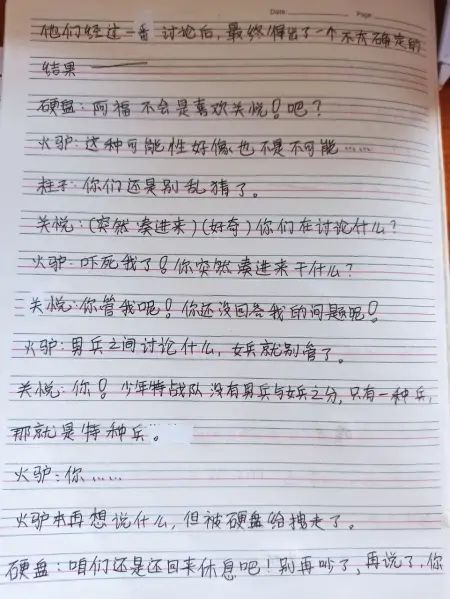 Date
Page
他们经过一番讨论后，最终得出了一个不太确定的
结果——
硬盘：阿福不会是喜欢关悦！吧？
火驴：这种可能性好像也不是不可能……
柱子：你们还是别乱猜了。
关悦：(突然凑进来)(好奇)你们在讨论什么？
火驴：吓死我了！你突然凑进来干什么？
关悦：你管我呢！你还没回答我的问题呢！
火驴：男兵之间讨论什么，女兵就别管了。
关悦：你！少年特战队没有男兵与女兵之分，只有一种兵，
那就是特种兵。
火驴：你……
火驴本再想说什么，但被硬盘给拽走了。
硬盘：咱们还是还回来休息吧！别再吵了，再说了，你